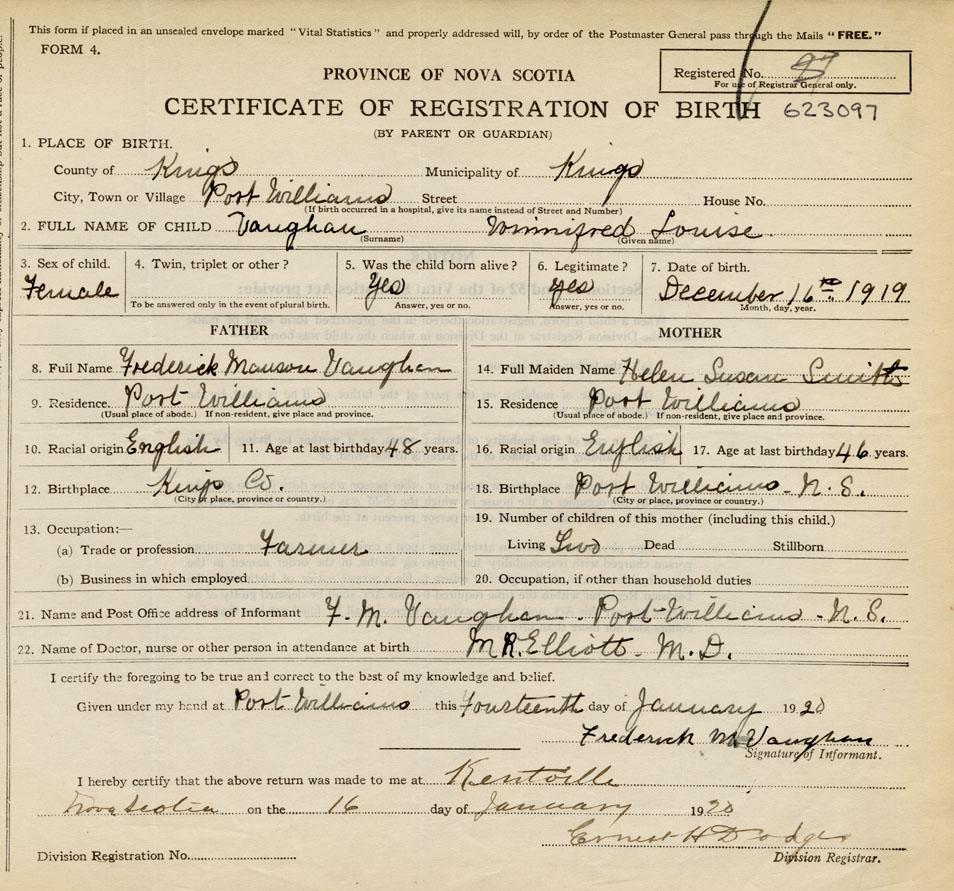 This form if placed in an unsealed envelope marked "Vital Statistics" and properly addressed will, by order of the Postmaster General pass through the Mails "FREE."
FORM 4.
PROVINCE OF NOVA SCOTIA
Registered No.
For use of Registrar General only.
CERTIFICATE OF REGISTRATION OF BIRTH 623097
(BY PARENT OR GUARDIAN)
1. PLACE OF BIRTH.
County of Kings Municipality of Kings
City, Town or Village Port Williams Street House No.
(If birth occurred in a hospital, give its name instead of Street and Number)
2. FULL NAME OF CHILD Vaughan Winnifred Louise
(Surname) (Given name)
3. Sex of child. 4. Twin, triplet or other? 5. Was the child born alive? 6. Legitimate? 7. Date of birth.
Female Yes yes December 16th 1919
To be answered only in the event of plural birth. Answer, yes or no. Answer, yes or no. Month, day, year.
FATHER MOTHER
8. Full Name Frederick Manson Vaughan 14. Full Maiden Name Helen Susan Smith
9. Residence. Port Williams 15. Residence Port Williams
(Usual place of abode.) If non-resident, give place and province. (Usual place of abode.) If non-resident, give place and province.
10. Racial origin English 11. Age at last birthday 48 years. 16. Racial origin English 17. Age at last birthday 46 years.
12. Birthplace Kings Co. 18. Birthplace Port Williams - N. S.
(City or place, province or country.) (City or place, province or country.)
13. Occupation:— 19. Number of children of this mother (including this child.)
(a) Trade or profession Farmer Living Two Dead Stillborn
(b) Business in which employed 20. Occupation, if other than household duties
21. Name and Post Office address of Informant F. M. Vaughan - Port Williams - N. S.
22. Name of Doctor, nurse or other person in attendance at birth M.R. Elliott - M. D.
I certify the foregoing to be true and correct to the best of my knowledge and belief.
Given under my hand at Port Williams this Fourteenth day of January 1920
Frederick M. Vaughan
Signature of Informant.
I hereby certify that the above return was made to me at Kentville
Nova Scotia on the 16 day of January 1920
Ernest H Dodge
Division Registration No. Division Registrar.